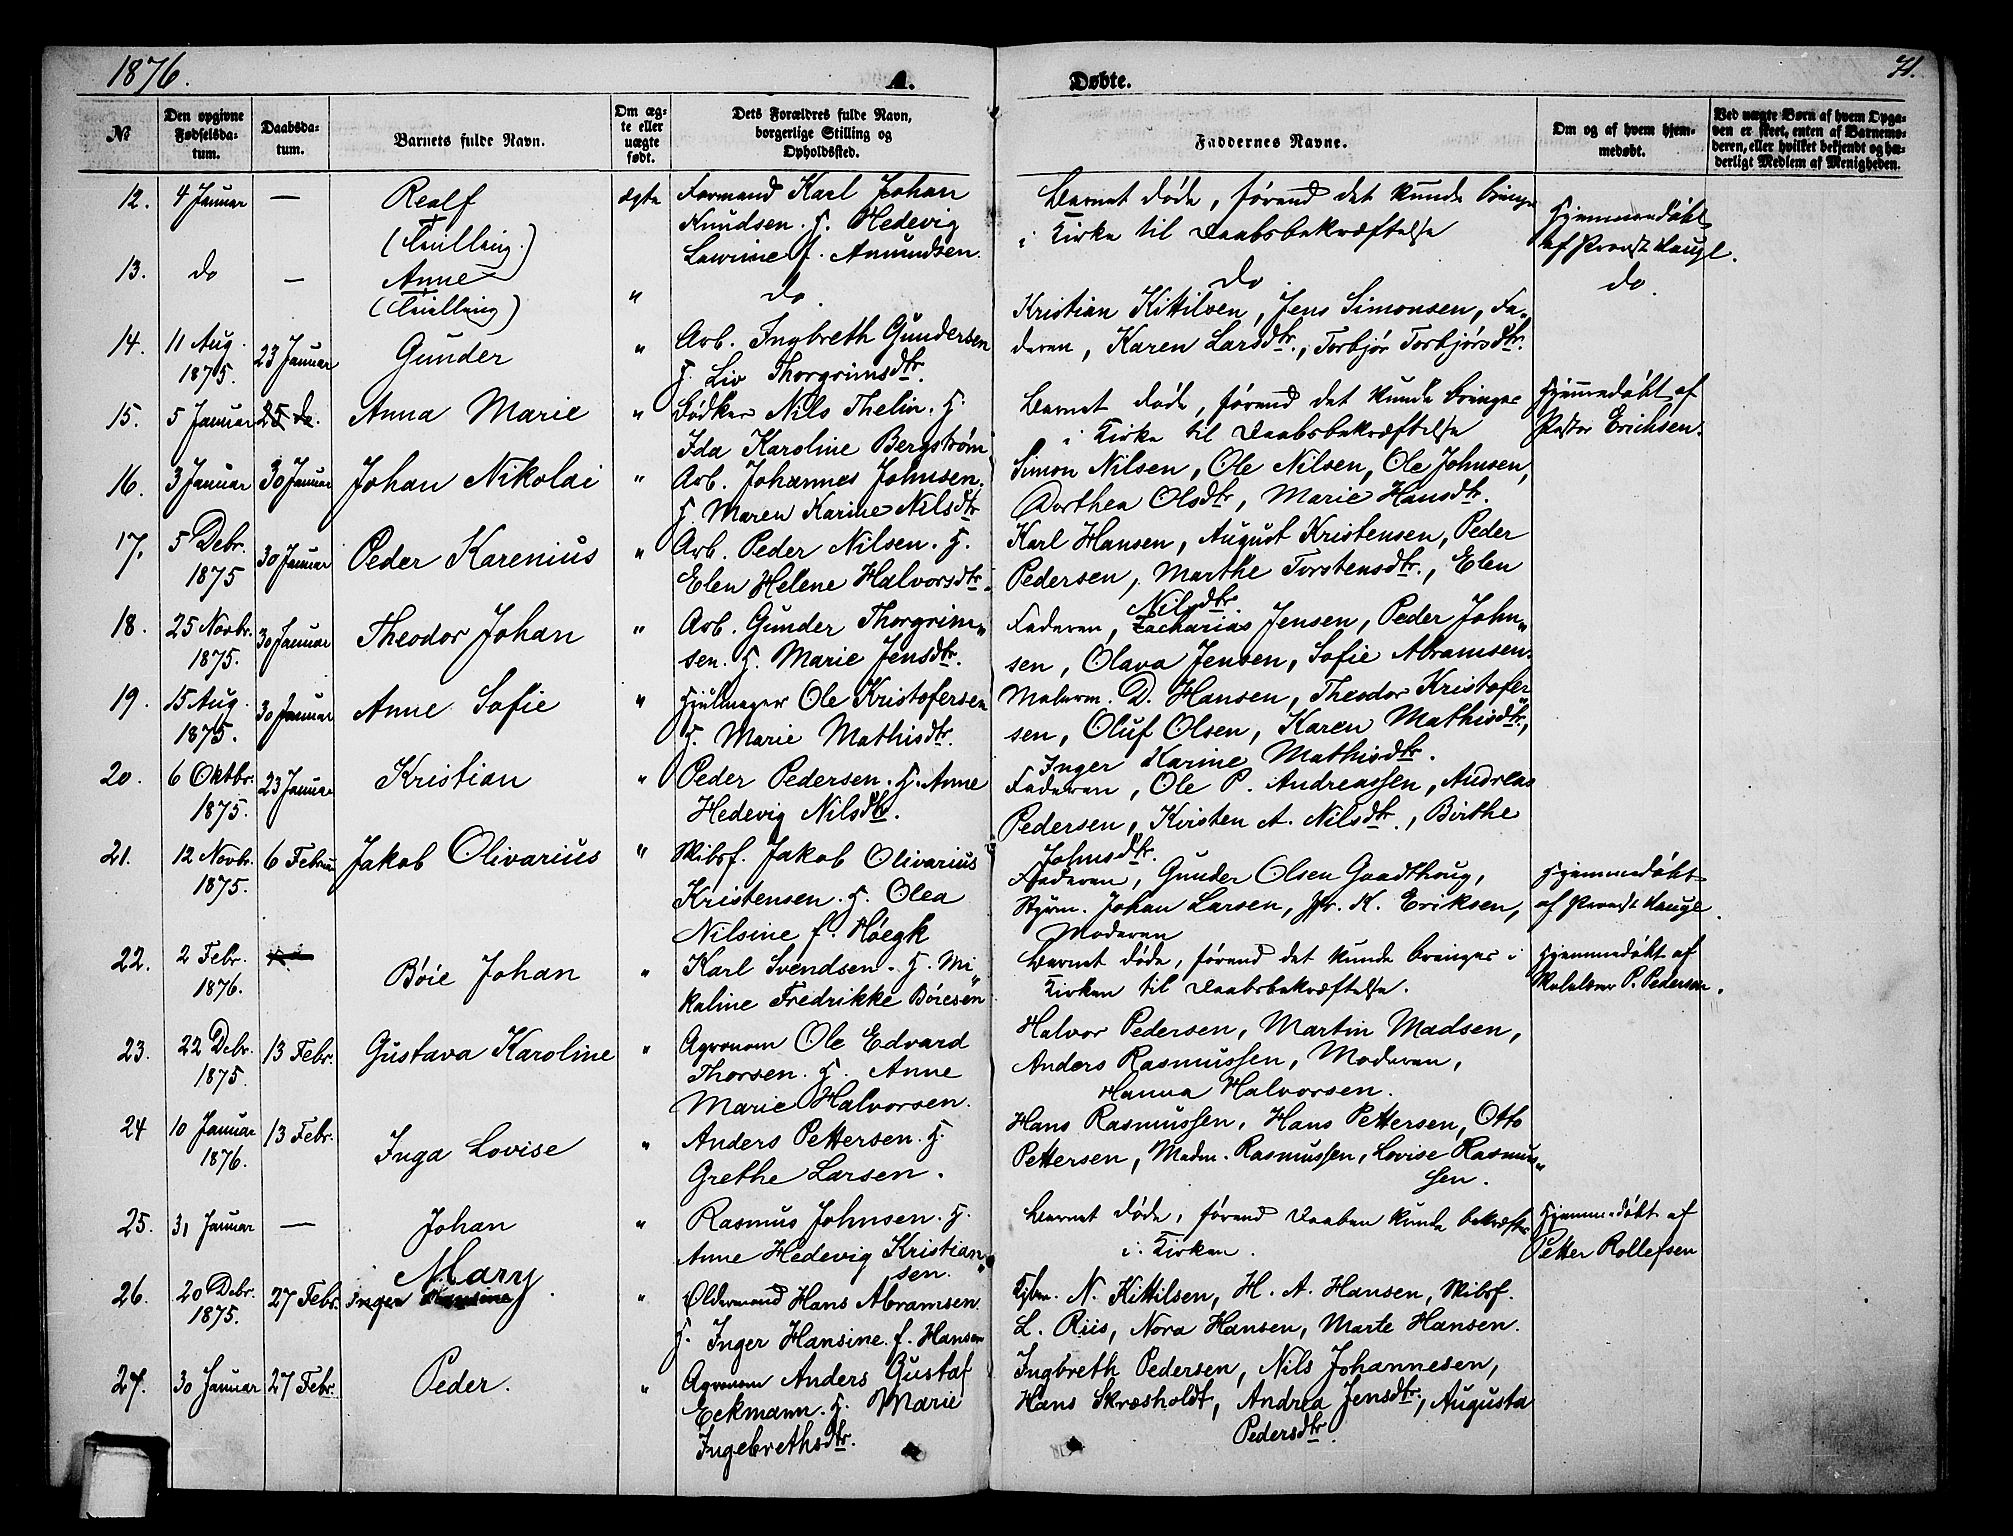 1876.
A.
Døbte.
71.
No
Den opgivne Fødselsdatum.
Daabsdatum.
Barnets fulde Navn.
Om ægte eller uægte født.
Dets Forældres fulde Navn, borgerlige Stilling og Opholdssted.
Faddernes Navne.
Om og af hvem hjemmedøbt.
Ved uægte Børn af hvem Opgaven er skeet, enten af Barnemoderen, eller hvilket bekjendt og hæderligt Medlem af Menigheden.
12. 4 Januar — Realf ægte Formand Karl Johan
(Tvilling.) Knudsen. H. Hedevig
Lavrine f. Amundsen.
Barnet døde, førend det kunde bringes
i Kirke til Daabsbekræftelse
Hjemmedøbt
af Provst Hauge.
13. do — Anne " do.
(Tvilling)
do.
do.
14. 11 Aug. 1875. 23 Januar Gunder " Arb. Ingbreth Gundersen
H. Liv Thorgrimsdtr.
Kristian Kittilsen, Jens Simonsen, Fa-
deren, Karen Larsdtr., Torbjør Torbjørsdtr.
15. 5 Januar 25 do. Anna Marie " Bødker Nils Thelin. H.
Ida Karoline Bergstrøm
Barnet døde, førend det kunde bringes
i Kirke til Daabsbekræftelse
Hjemmedøbt af
Pastor Erichsen.
16. 3 Januar 30 Januar Johan Nikolai " Arb. Johannes Johnsen.
H. Maren Karine Nilsdtr
Simon Nilsen, Ole Nilsen, Ole Johnsen,
Dorthea Olsdtr, Marie Hansdtr.
17. 5 Debr. 1875 30 Januar Peder Karenius " Arb. Peder Nilsen. H.
Elen Helene Halvorsdtr.
Karl Hansen, August Kristensen, Peder
Pedersen, Marthe Torstensdtr., Elen
Nilsdtr.
18. 25 Novbr. 1875. 30 Januar Theodor Johan " Arb. Gunder Thorgrim-
sen. H. Marie Jensdtr.
Faderen, Zacharias Jensen, Peder John-
sen, Olava Jensen, Sofie Abramsen.
19. 15 Aug. 1875. 30 Januar Anne Sofie " Hjulmager Ole Kristofersen
H. Marie Mathisdtr.
Malerm. D. Hansen, Theodor Kristofer-
sen, Oluf Olsen, Karen Mathisdtr.,
Inger Karine Mathisdtr.
20. 6 Oktbr. 1875. 23 Januar Kristian " Peder Pedersen. H. Anne
Hedevig Nilsdtr.
Faderen, Ole P. Andreassen, Andreas
Pedersen, Kirsten A. Nilsdtr., Birthe
Johnsdtr.
21. 12 Novbr. 1875. 6 Februar Jakob Olivarius " Skibsf. Jakob Olivarius
Kristensen. H. Olea
Nilsine f. Høegk
Faderen, Gunder Olsen Goadthoug,
Styrm. Johan Larsen, Jfr. K. Eriksen,
Moderen
Hjemmedøbt
af Provst Hauge.
22. 2 Febr. 1876. Böie Johan " Karl Svendsen. H. Mi-
kaline Fredrikke Böresen
Barnet døde, førend det kunde bringes i
Kirken til Daabsbekræftelse.
Hjemmedøbt af
Skolelærer P. Pedersen.
23. 22 Debr. 1875. 13 Febr. Gustava Karoline " Agronom Ole Edvard
Thorsen. H. Anne
Marie Halvorsen.
Halvor Pedersen, Martin Madsen,
Anders Rasmussen, Moderen,
Hanna Halvorsen.
24 10 Januar 1876. 13 Febr. Inga Lovise " Anders Pettersen. H.
Grethe Larsen.
Hans Rasmussen, Hans Pettersen, Otto
Pettersen, Madm. Rasmussen, Lovise Rasmus-
sen.
25. 31 Januar — Johan " Rasmus Johnsen. H.
Anne Hedevig Kristian-
sen.
Barnet døde, førend Daaben kunde bekræftes
i Kirken.
Hjemmedøbt af
Petter Rollefsen
26. 20 Debr. 1875. 27 Febr. Mary
Inger Hansine. " Oldermand Hans Abramsen
H. Inger Hansine f. Hansen
Kjbm. N. Kittilsen, H. A. Hansen, Skibsf.
L. Riis, Nora Hansen, Marte Hansen.
27. 30 Januar 27 Febr. Peder. " Agronom Anders Gustaf
Eckmann. H. Marie
Ingebrethsdtr.
Ingbreth Pedersen, Nils Johannesen,
Hans Skræsholdt, Andrea Jensdtr., Augusta
Pedersdtr.